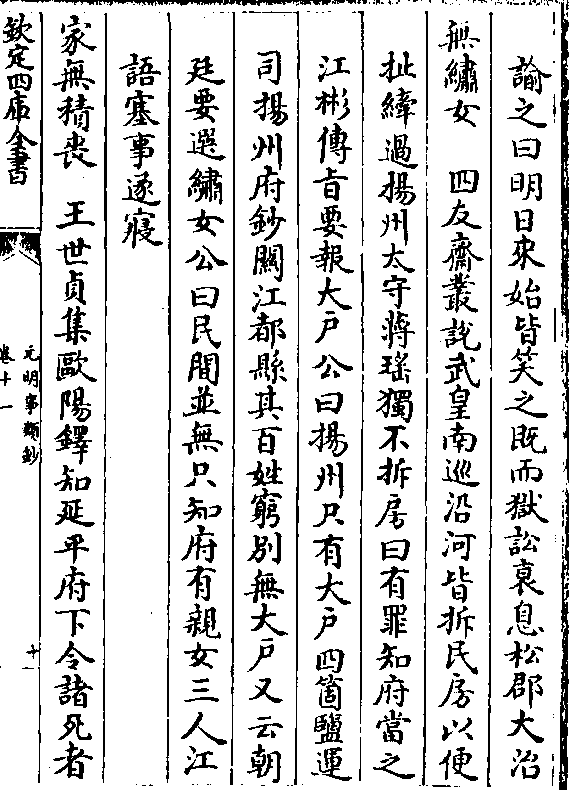 諭之曰明日來始皆笑之既而獄訟衰息松郡大治
無繡女　四友齋叢說武皇南巡沿河皆拆民房以便
扯縴過揚州太守蔣瑤獨不拆房曰有罪知府當之
江彬傳旨要報大戶公曰揚州只有大戶四箇鹽運
司揚州府鈔關江都縣其百姓窮別無大戶又云朝
廷要選繡女公曰民間並無只知府有親女三人江
語塞事遂寢
家無積喪　王世貞集歐陽鐸知延平府下令諸死者
欽定四庫全書
元明事類鈔
卷十一
十